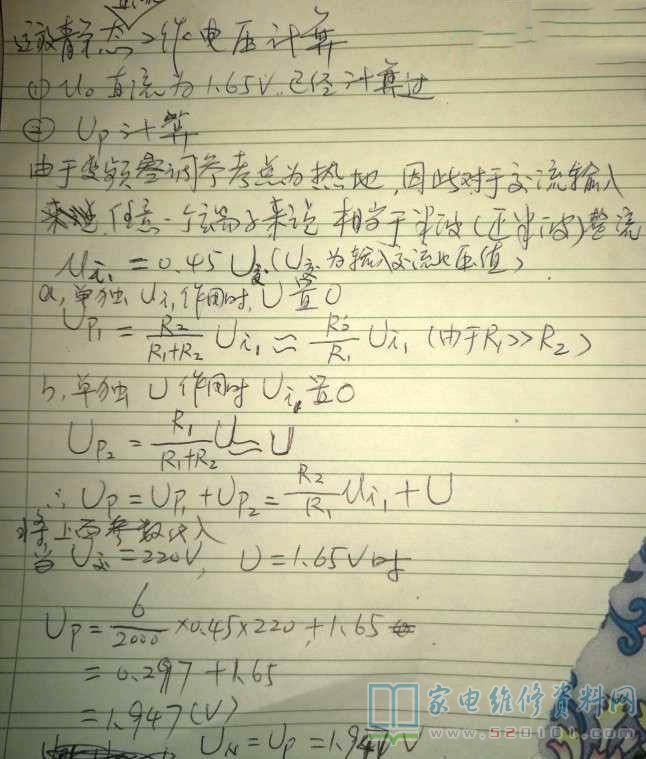 运放静态工作电压计算
① Uo直流为1.65V.已经计算过
② Up计算
由于变频空调参考点为热地,因此对于交流输入
任意一个端子来说相当于半波(正半波)整流
Ui₁=0.45U交(U交为输入交流电压值)
a,单独Ui₁作用时,U置0
UP₁=R₂/(R₁+R₂) Ui₁≈R₂/R₁ Ui₁ (由于R₁>>R₂)
b,单独U作用时Ui₁置0
UP₂=R₁/(R₁+R₂) U≈U
∴Up=UP₁+UP₂=R₂/R₁ Ui₁+U
将上面参数代入
当U交=220V, U=1.65V时
Up=6/2000×0.45×220+1.65
=0.297+1.65
=1.947(V)
UN=Up=1.947V
家电维修资料网
www.520101.com